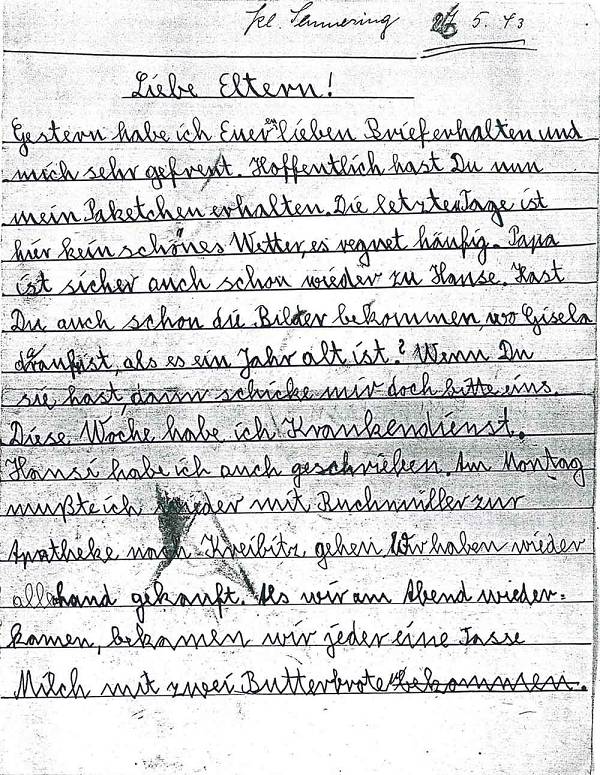 Kl. Semmering 27. 5. 43
Liebe Eltern!
Gestern habe ich Eueren lieben Brief erhalten und
mich sehr gefreut. Hoffentlich hast Du nun
mein Paketchen erhalten. Die letzten Tage ist
hier kein schönes Wetter, es regnet häufig. Papa
ist sicher auch schon wieder zu Hause. Hast
Du auch schon die Bilder bekommen, wo Gisela
draufist, als es ein Jahr alt ist? Wenn Du
sie hast, dann schicke mir doch bitte eins.
Diese Woche habe ich Krankendienst.
Hansi habe ich auch geschrieben. Am Montag
mußte ich wieder mit Ruchmüller zur
Apotheke nach Kreibitz gehen Wir haben wieder
allehand gekauft. Als wir am Abend wieder=
kamen, bekamen wir jeder eine Tasse
Milch mit zwei Butterbrote bekommen.